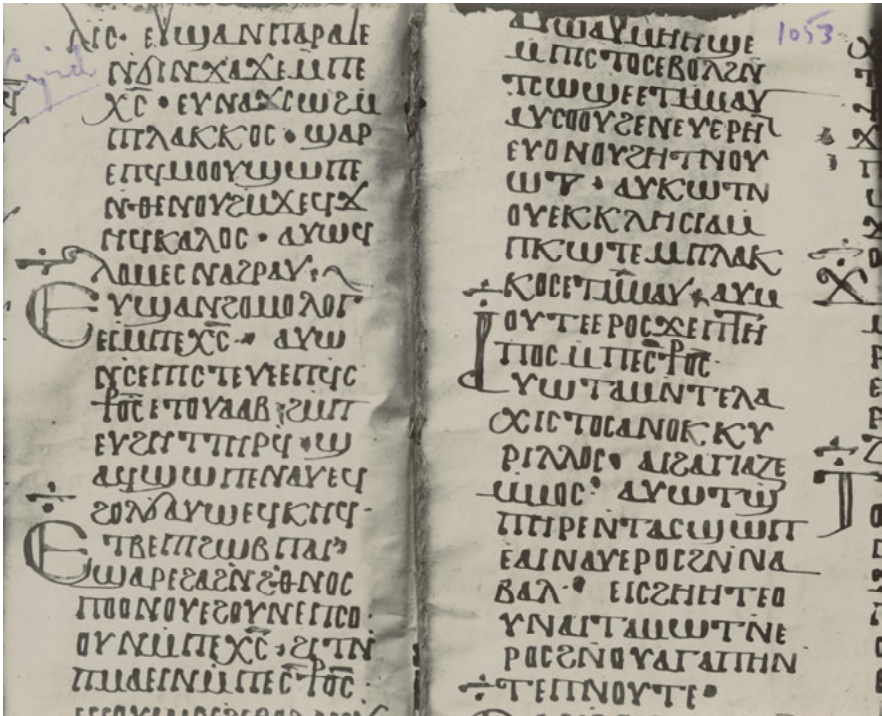 ⲗⲓⲥ· ⲉⲩϣⲁⲛⲡⲁⲣⲁⲅⲉ
ⲛϭⲓⲛϫⲁϫⲉⲙⲡⲉ
ⲭ̅ⲥ̅ · ⲉⲩⲛⲁϫⲥⲱϩⲙ
ⲡⲗⲁⲕⲕⲟⲥ · ϣⲁⲣ
ⲉⲡϥⲙⲟⲟⲩϣⲱⲡⲉ
ⲛⲑⲉⲛⲟⲩϩⲙϫⲉϥϫ
ⲏϥⲕⲁⲗⲟⲥ · ⲁⲩⲱϥ
ⲗⲟⲙⲉⲥ ⲛⲁϩⲣⲁⲩ·
ⲉⲩϣⲁⲛϩⲟⲙⲟⲗⲟⲅ
ⲉⲓⲙⲡⲉⲭ̅ⲥ̅ · ⲁⲩⲱ
ⲛⲥⲉⲡⲓⲥⲧⲉⲩⲉⲉⲡϥⲥ
⳨ⲟ̅ⲥ̅ ⲉⲧⲟⲩⲁⲁⲃ ϩⲙⲡ
ⲉⲩϩⲏⲧⲧⲏⲣϥ · ϣ
ⲁϥϣⲱⲡⲉⲛⲁⲩⲉϥ
ϩⲟⲗϭⲁⲩⲱⲉϥⲕⲏϥ·
ⲉⲧⲃⲉⲡϩⲱⲃ ⲡⲁⲓ
ϣⲁⲣⲉϩⲁϩⲛϩⲉⲑⲛⲟⲥ
ⲡⲟⲟⲛⲟⲩⲉϩⲟⲩⲛⲉⲡⲥⲟ
ⲟⲩⲛⲙⲡⲉⲭ̅ⲥ̅ · ϩⲓⲧⲛ
ⲡⲙⲁⲉⲓⲛⲙⲡⲉⲥ̅⳨ⲟ̅ⲥ̅
1053
ⲁϣⲁⲩⲙⲏⲏϣⲉ
ⲙⲡⲓⲥⲧⲟⲥⲉⲃⲟⲗϩⲛ
ⲧⲥⲱϣⲉⲉⲧⲙⲙⲁⲩ
ⲁⲩⲥⲟⲟⲩϩⲉⲛⲉⲩⲉⲣⲏ
ⲉⲩⲟⲛⲟⲩϩⲏⲧⲛⲟⲩ
ⲱⲧ · ⲁⲩⲕⲱⲧⲛ
ⲟⲩⲉⲕⲕⲗⲏⲥⲓⲁⲙ
ⲡⲕⲱⲧⲉⲙⲡⲗⲁⲕ
ⲕⲟⲥⲉⲧⲙⲙⲁⲩ · ⲁⲩⲙ
ⲟⲩⲧⲉⲉⲣⲟⲥϫⲉⲡⲧⲏ
ⲡⲟⲥⲙⲡⲉⲥ̅⳨ⲟ̅ⲥ̅·
ⲁⲩⲱⲧⲁⲙⲛⲧⲉⲗⲁ
ⲭⲓⲥⲧⲟⲥⲁⲛⲟⲕⲕⲩ
ⲣⲓⲗⲗⲟⲥ · ⲁⲓϩⲁⲅⲓⲁⲍⲉ
ⲙⲙⲟⲥ · ⲁⲩⲱⲧϣ
ⲡⲏⲣⲉⲛⲧⲁⲥϣⲱⲡ
ⲉⲁⲓⲛⲁⲩⲉⲣⲟⲥϩⲛⲛⲁ
ⲃⲁⲗ · ⲉⲓⲥϩⲏⲏⲧⲉⲟ
ⲩⲛⲁⲓⲧⲁⲙⲱⲧⲛⲉ
ⲣⲟⲥϩⲛⲟⲩⲁⲅⲁⲡⲏⲛ
ⲧⲉⲡⲛⲟⲩⲧⲉ ·